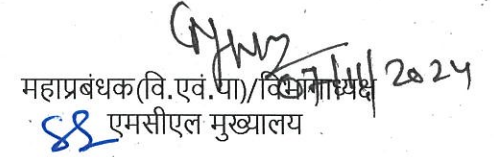 07/11/2024
महाप्रबंधक(वि.एवं.या)/विभागाध्यक्ष
एमसीएल मुख्यालय